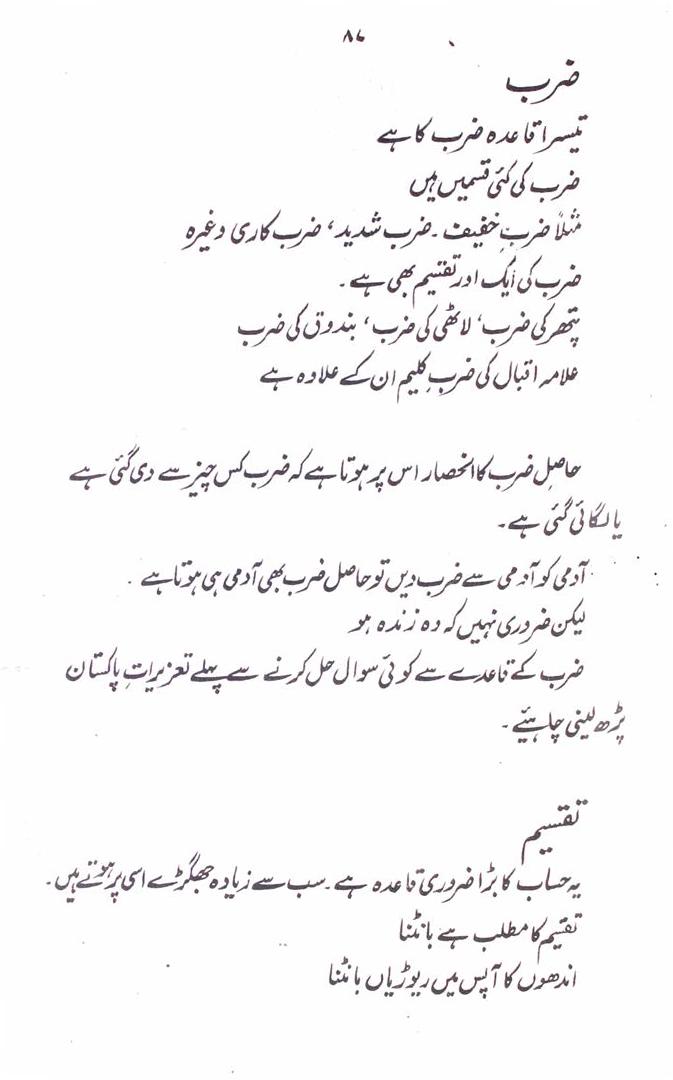 ۸۷
ضرب
تیسرا قاعدہ ضرب کا ہے
ضرب کی کئی قسمیں ہیں
مثلاً ضربِ خفیف۔ ضرب شدید، ضرب کاری وغیرہ
ضرب کی ایک اور تقسیم بھی ہے۔
پتھر کی ضرب، لاٹھی کی ضرب، بندوق کی ضرب
علامہ اقبال کی ضربِ کلیم ان کے علاوہ ہے
حاصلِ ضرب کا انحصار اس پر ہوتا ہے کہ ضرب کس چیز سے دی گئی ہے
یا لگائی گئی ہے۔
آدمی کو آدمی سے ضرب دیں تو حاصل ضرب بھی آدمی ہی ہوتا ہے۔
لیکن ضروری نہیں کہ وہ زندہ ہو
ضرب کے قاعدے سے کوئی سوال حل کرنے سے پہلے تعزیراتِ پاکستان
پڑھ لینی چاہیئے۔
تقسیم
یہ حساب کا بڑا ضروری قاعدہ ہے۔ سب سے زیادہ جھگڑے اسی پر ہوتے ہیں۔
تقیم کا مطلب ہے بانٹنا
اندھوں کا آپس میں ریوڑیاں بانٹنا